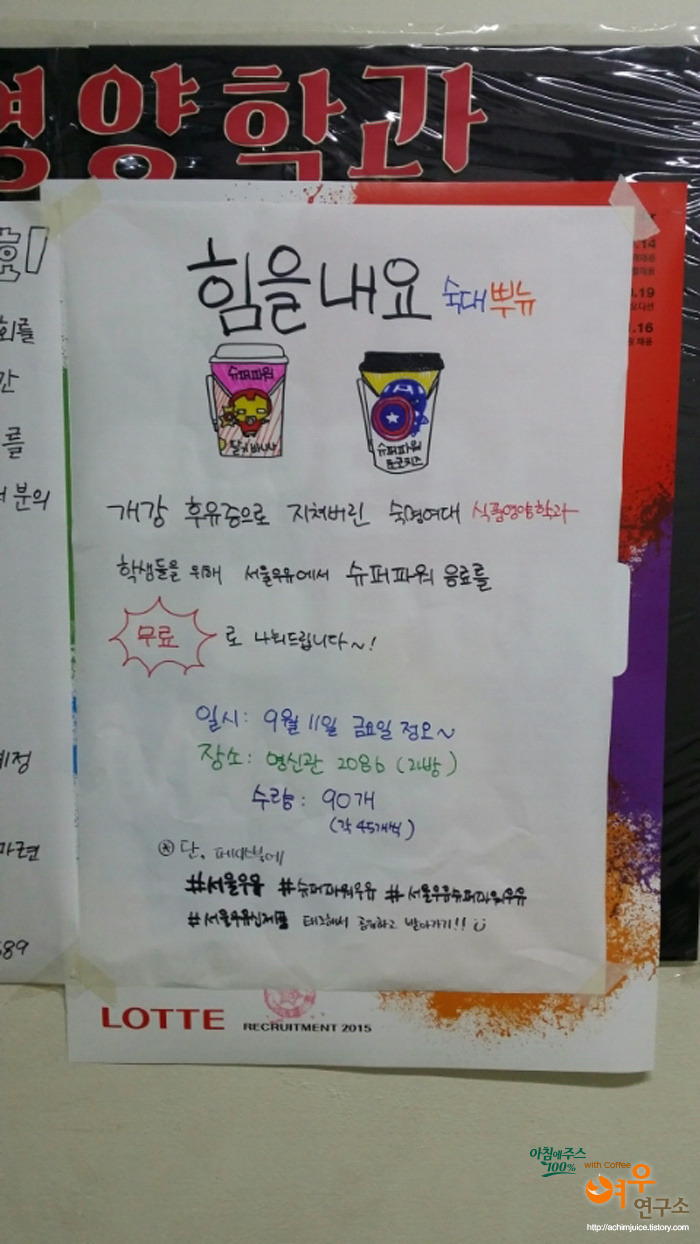 영양학과
힘을내요 숙대뿌뉴
슈퍼파워
딸기바나나
슈퍼파워
개강 후유증으로 지쳐버린 숙명여대 식품영양학과
학생들을 위해 서울우유에서 슈퍼파워 음료를
무료 로 나눠드립니다~!
일시: 9월 11일 금요일 정오~
장소: 명신관 208b (과방)
수량: 90개
(각 45개씩)
단, 페이스북에
#서울우유 #슈퍼파워우유 #서울우유슈퍼파워우유
#서울우유신제품 태그해서 공유하고 받아가기!!
회를
간
를
분의
예정
마련
589
.14
.19
오디션
.16
채용
LOTTE RECRUITMENT 2015
아침에주스
100% with Coffee
여우
연구소
http://achimjuice.tistory.com